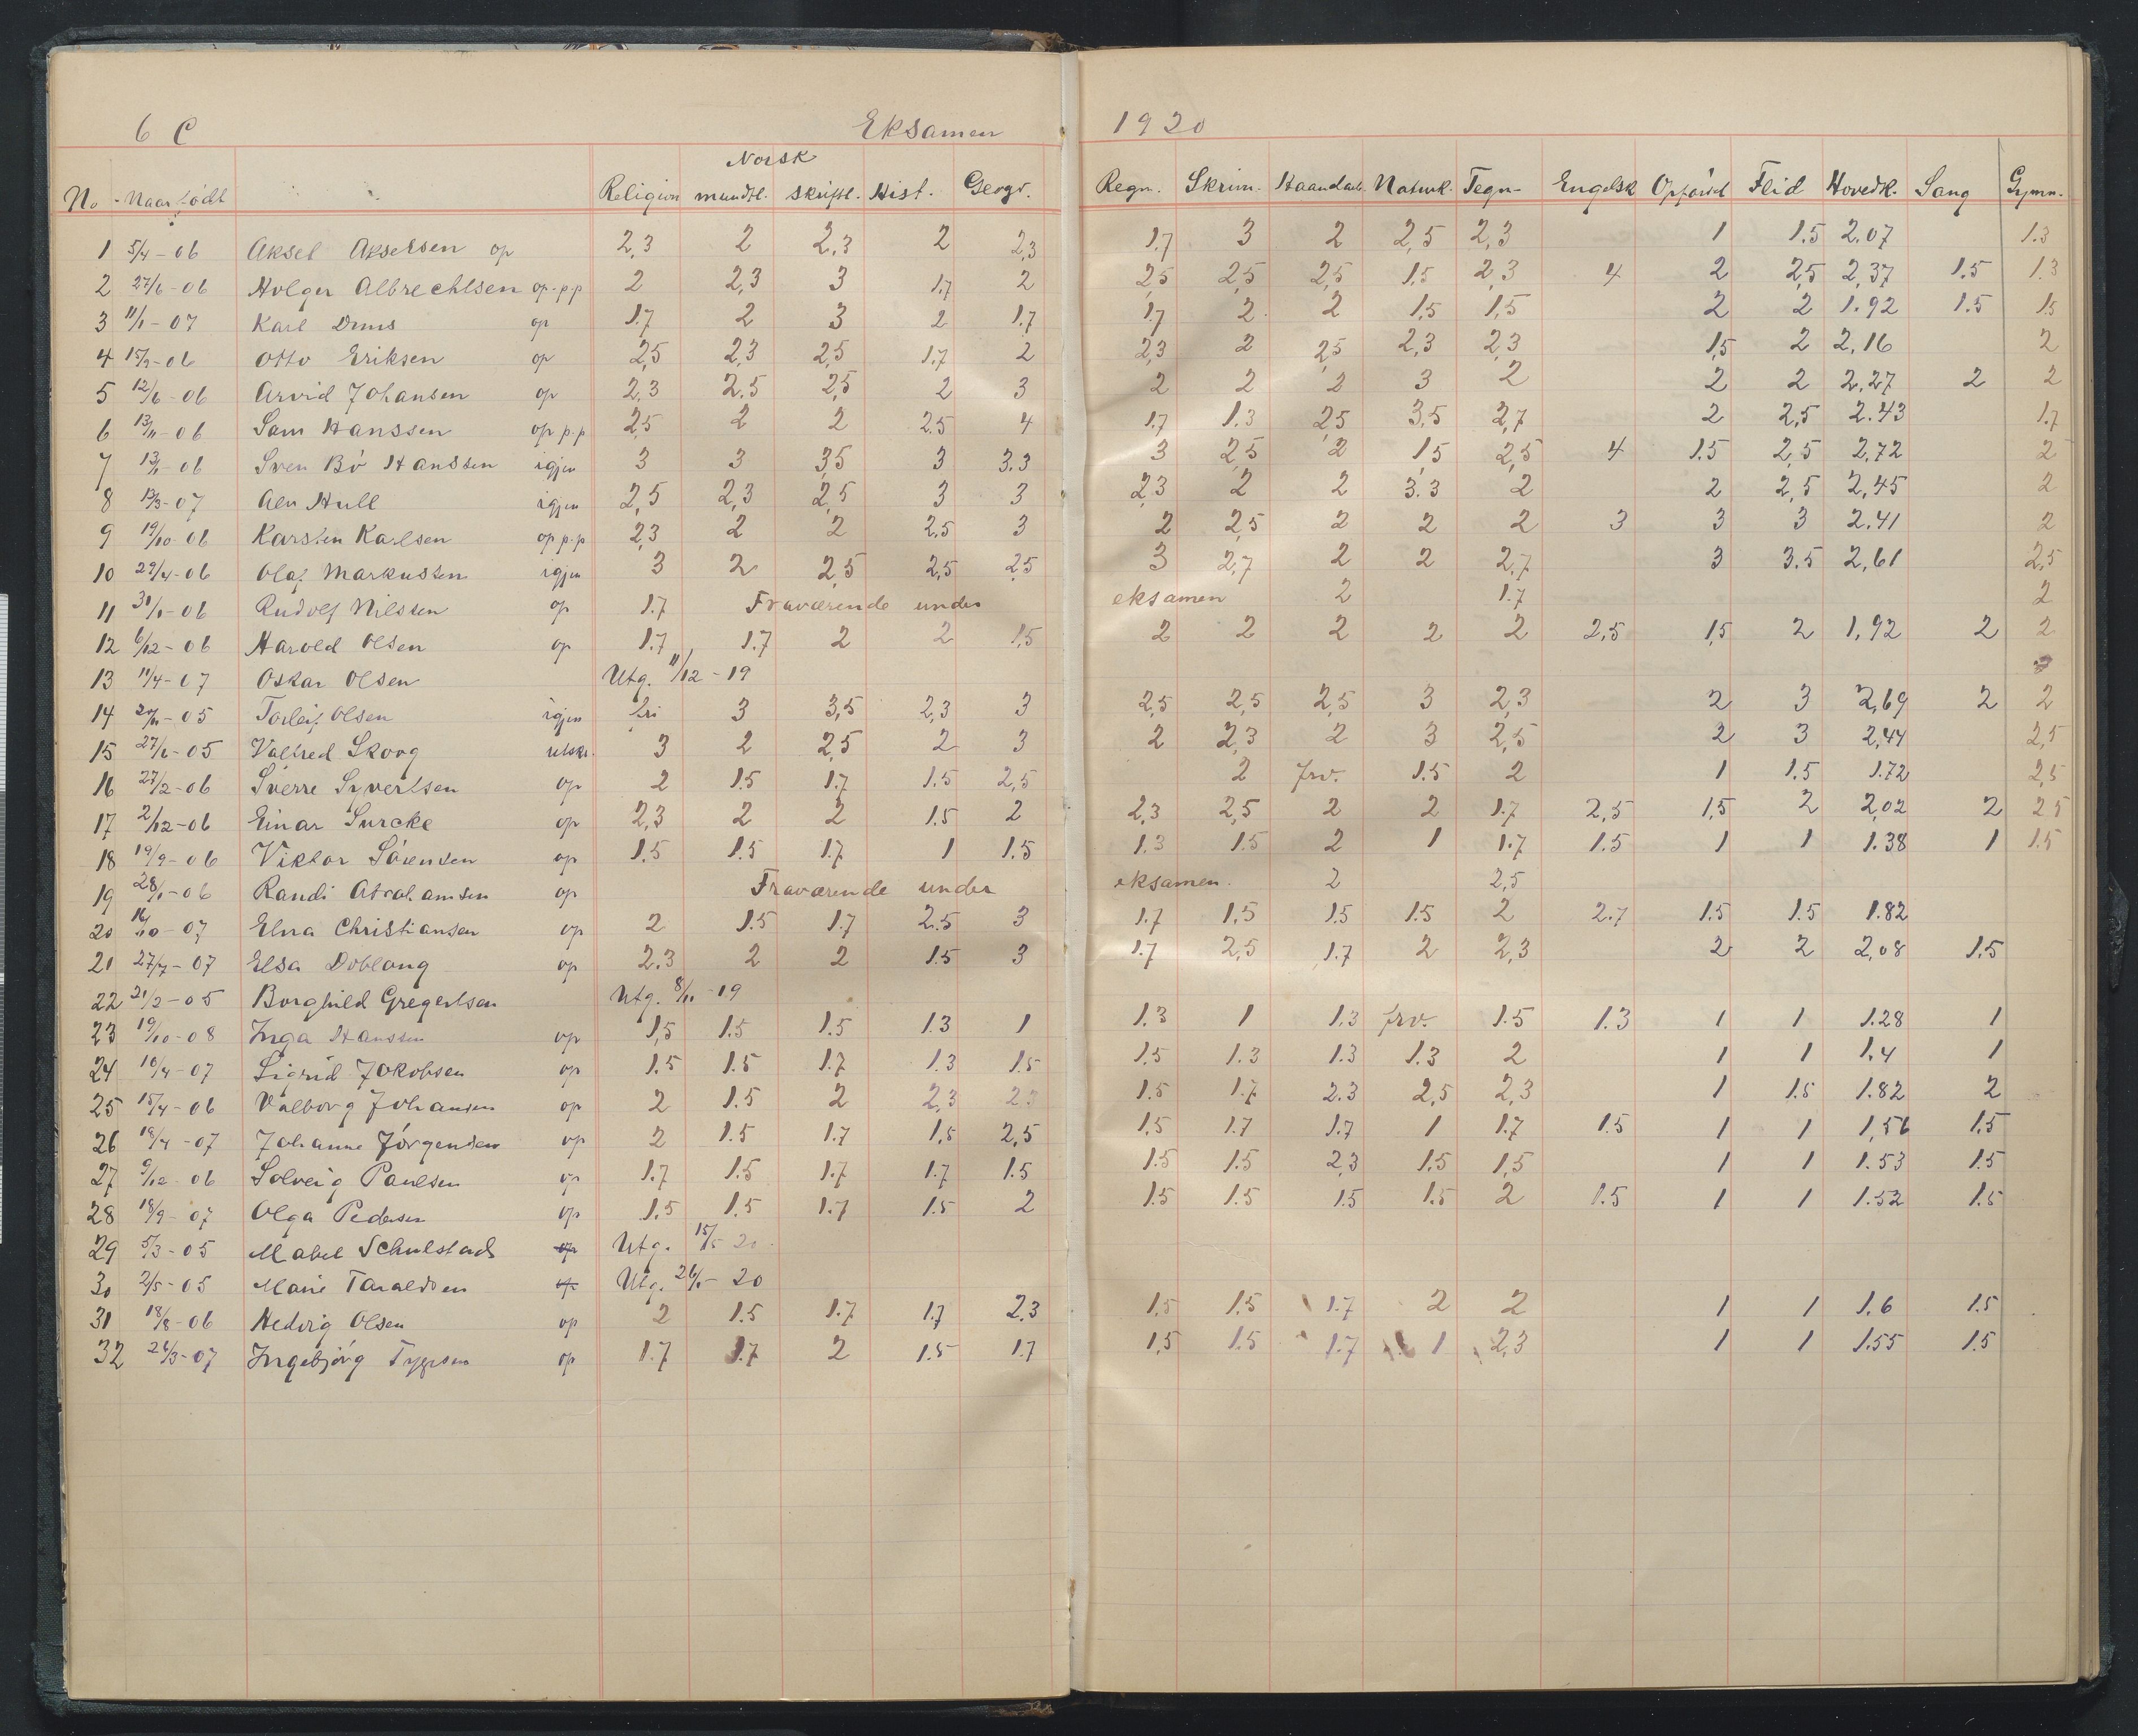 6 C Eksamen 1920
Norsk
No Naar født Religion mundtl. skriftl. Hist. Geogr. Regn. Skrivn. Haandarb. Naturk. Tegn- Engelsk Opførsel Flid Hovedk. Sang Gymn.
1 5/4-06 Aksel Akselsen op 2,3 2 2,3 2 2,3 1.7 3 2 2,5 2,3 1 1.5 2.07 1.3
2 27/6-06 Holger Albrechtsen op.p.p 2 2,3 3 1,7 2 2,5 2,5 2,5 1,5 2,3 4 2 2,5 2,37 1.5 1.3
3 11/1-07 Karl 1.7 2 3 2 1.7 1.7 2 2 1,5 1,5 2 2 1.92 1.5 1.5
4 15/9-06 Otto Eriksen op 2,5 2,3 2,5 1.7 2 2,3 2 2,5 2,3 2,3 1,5 2 2,16 2
5 12/6-06 Arvid Johansen op 2,3 2.5 2,5 2 3 2 2 2 3 2 2 2 2,27 2 2
6 13/11-06 Sam Hanssen op p.p 2,5 2 2 2.5 4 1.7 1.3 2,5 3,5 2,7 2 2,5 2.43 1.7
7 13/11-06 Sven Bö Hanssen igjen 3 3 3,5 3 3.3 3 2,5 2 1,5 2,5 4 1.5 2,5 2,72 2
8 13/3-07 Alv Hull igjen 2,5 2,3 2,5 3 3 2,3 2 2 3.3 2 2 2,5 2,45 2
9 19/10-06 Karsten Karlsen op p.p 2,3 2 2 2.5 3 2 2,5 2 2 2 3 3 3 2.41 2
10 29/4-06 Olaf Markussen igjen 3 2 2,5 2,5 2,5 3 2,7 2 2 2,7 3 3.5 2,61 2,5
11 31/1-06 Rudolf Nilssen op 1.7 Fraværende under eksamen 2 1.7 2
12 6/12-06 Harold Olsen op 1.7 1.7 2 2 1,5 2 2 2 2 2 2,5 1,5 2 1,92 2 2
13 11/4-07 Oskar Olsen Utg. 11/12-19
14 -05 Torleif Olsen igjen fri 3 3,5 2,3 3 2,5 2,5 2,5 3 2,3 2 3 2,69 2 2
15 27/6-05 Valfred Skovg utskr. 3 2 2,5 2 3 2 2,3 2 3 2,5 2 3 2,44 2,5
16 27/2-06 Sverre Syvertsen op 2 1.5 1.7 1.5 2,5 2 frv. 1.5 2 1 1.5 1.72 2,5
17 2/12-06 Einar Surcke op 2,3 2 2 1.5 2 2,3 2,5 2 2 1.7 2,5 1,5 2 2,02 2 2 5
18 19/9-06 Viktor Sörensen op 1.5 1.5 1.7 1 1.5 1.3 1.5 2 1 1.7 1.5 1 1 1.38 1 1.5
19 28/1-06 Randi Abrahamsen op Fraværende under eksamen. 2 2,5
20 16/10-07 Elna Christiansen op 2 1.5 1.7 2.5 3 1.7 1,5 1.5 1.5 2 2.7 1.5 1.5 1.82
21 27/7-07 Elsa Doblong op 2.3 2 2 1.5 3 1.7 2,5 1.7 2 2,3 2 2 2,08 1.5
22 21/2-05 Borghild Gregertsen Utg. 8/11-19
23 19/10-08 Inga Hanssen op 1,5 1.5 1.5 1.3 1 1.3 1 1.3 frv. 1.5 1.3 1 1 1.28 1
24 10/4-07 Sigrid Jakobsen op 1.5 1.5 1.7 1.3 1.5 1.5 1.3 1.3 1.3 2 1 1 1.4 1
25 15/4-06 Valborg Johansen op 2 1.5 2 2,3 2.3 1.5 1.7 2.3 2,5 2,3 1 1.5 1.82 2
26 18/4-07 Johanne Jörgensen op 2 1.5 1.7 1,5 2,5 1,5 1.7 1.7 1 1.7 1.5 1 1 1,56 1,5
27 9/12-06 Solveig Paulsen op 1.7 1.5 1.7 1.7 1.5 1.5 1.5 2,3 1.5 1,5 1 1 1.53 1.5
28 18/9-07 Olga Pedersen op 1.5 1.5 1.7 1.5 2 1.5 1.5 1.5 1.5 2 1.5 1 1 1.52 1.5
29 5/3-05 Mabel Schulstad op Utg. 15/5 20
30 2/5-05 Marie Taraldsen op Utg. 20
31 18/8-06 Hedvig Olsen op 2 1.5 1.7 1.7 2.3 1.5 1.5 1.7 2 2 1 1 1.6 1.5
32 26/3-07 Ingebjörg op 1.7 1.7 2 1.5 1.7 1,5 1.5 1.7 1 2,3 1 1 1.55 1.5